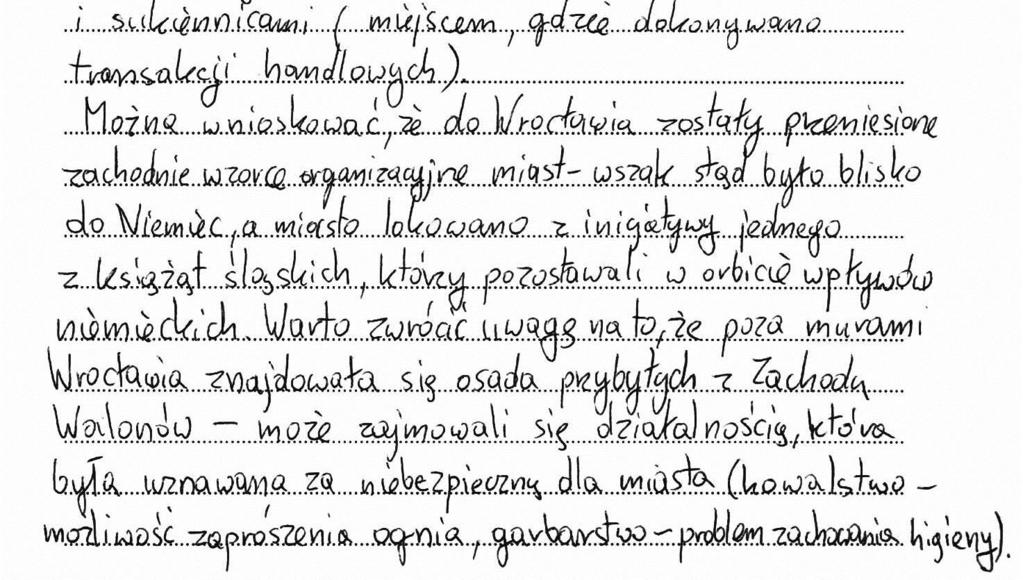 i sukiennicami ( miejscem, gdzie dokonywano
transakcji handlowych).
Można wnioskować, że do Wrocławia zostały przeniesione
zachodnie wzorce organizacyjne miast - wszak stąd było blisko
do Niemiec, a miasto lokowano z inicjatywy jednego
z książąt śląskich, którzy pozostawali w orbicie wpływów
niemieckich. Warto zwrócić uwagę na to, że poza murami
Wrocławia znajdowała się osada przybyłych z Zachodu
Walonów – może zajmowali się działalnością, która
była uznawana za niebezpieczną dla miasta (kowalstwo –
możliwość zaprószenia ognia, garbarstwo – problem zachowania higieny).